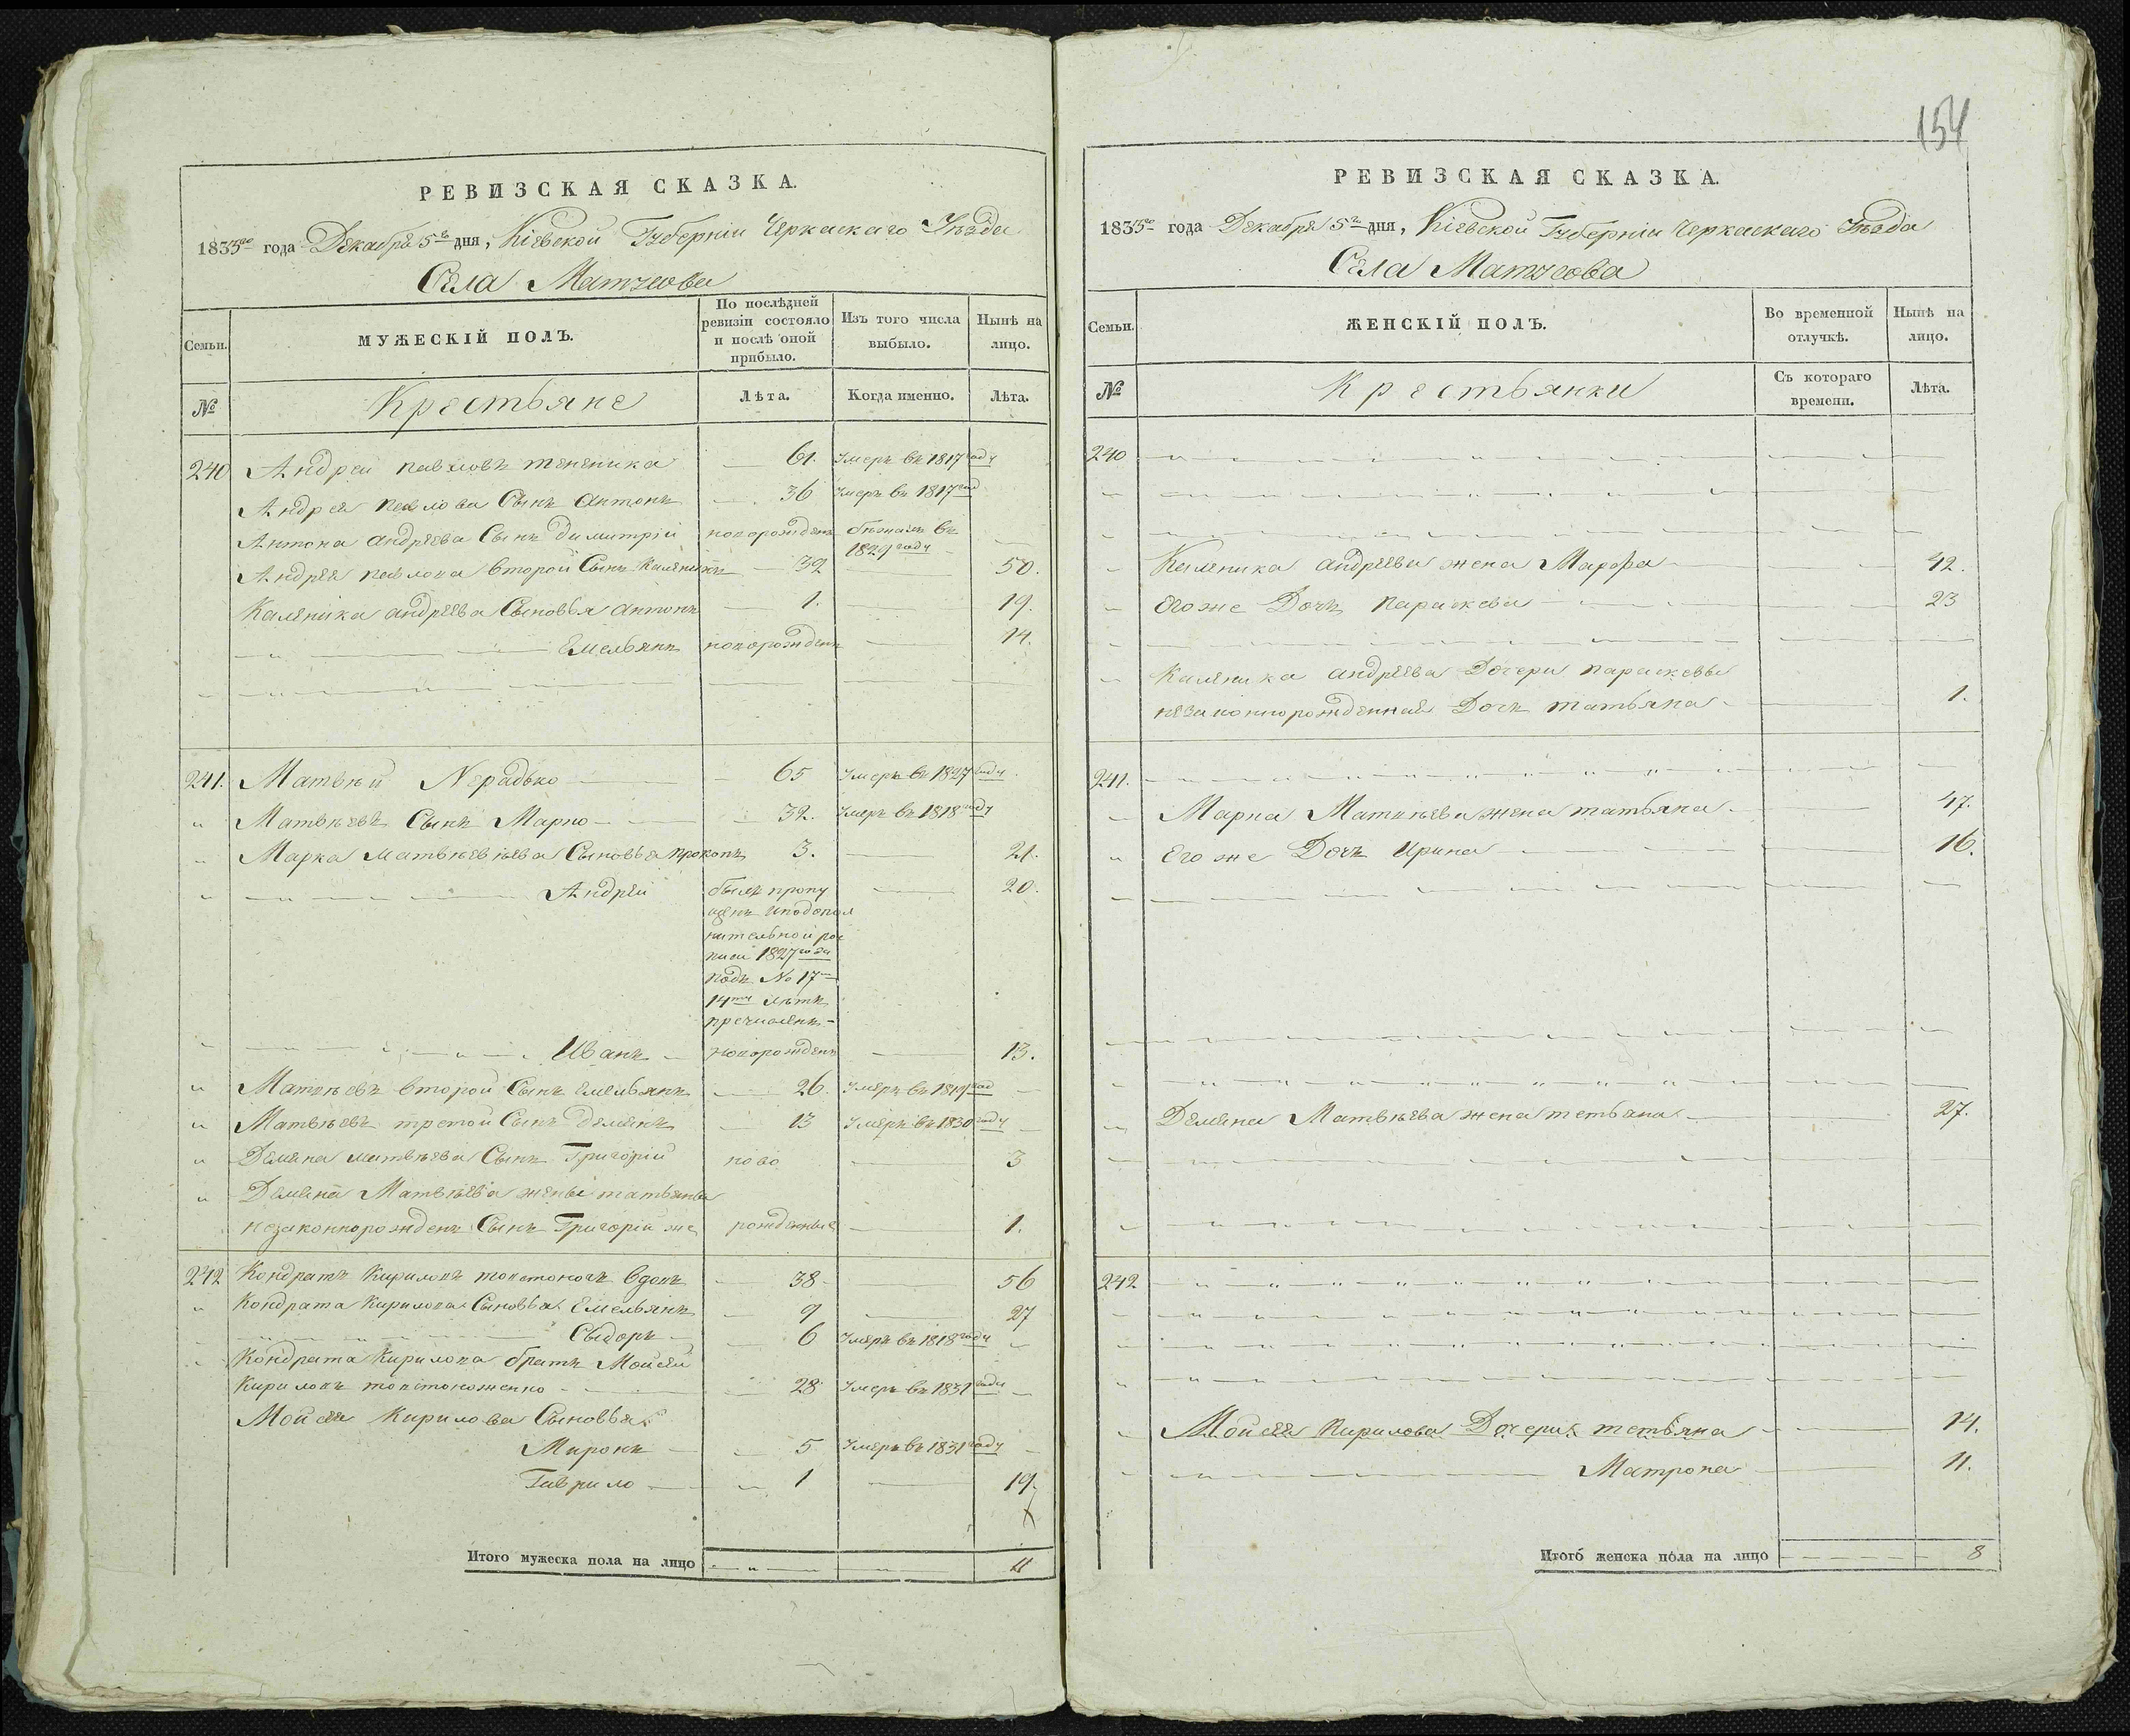 РЕВИЗСКАЯ СКАЗКА.
1835го года Декабря 5го дня, Кіевской Губерніи Черкаскаго Уѣзда
Села Матусова
Семьи. МУЖЕСКІЙ ПОЛЪ. По послѣдней ревизіи состояло и послѣ оной прибыло. Изъ того числа выбыло. Нынѣ на лицо.
№ Крестьяне Лѣта. Когда именно. Лѣта.
240 Андрей Павловъ 61. Умеръ въ 1817 году
Андрея Павлова Сынъ Антонъ 36 Умеръ въ 1817 год
Антона Андреева Сынъ Димитрій новорожденъ бѣжалъ въ
1829 году
Андрея Павлова второй Сынъ Каленикъ 32 50.
Каленика Андреева Сыновья Антонъ 1. 19.
Емельянъ новорожденъ 14.
241. Матвѣй Нерадько 65 Умеръ въ 1827 году
Матвѣевъ Сынъ Марко 32. Умеръ въ 1818 году
Марка Матвѣева Сыновья Прокопъ 3. 21.
Андрей былъ пропу 20.
щенъ и по допол
нительной рос
писи 1827 года
подъ № 17
14ти лѣтъ
пречисленъ
Иванъ новорожденъ 13.
Матвѣевъ второй Сынъ Емельянъ 26. Умеръ въ 1819 год
Матвѣевъ третой Сынъ Деменъ 13 Умеръ въ 1830 году
Демена Матвѣева Сынъ Григорій ново 3
Демена Матвѣева жены татьяны
незаконнорожденъ Сынъ Григорій же рожденные 1.
242 Кондратъ Кириловъ толстоногъ вдовъ 38 56
Кондрата Кирилова Сыновья Емельянъ 9 27
Сыдоръ 6 Умеръ въ 1818 году
Кондрата Кирилова братъ Мойсей
Кириловъ толстоноженко 28 Умеръ въ 1831 году
Мойсея Кирилова Сыновья
Миронъ 5 Умеръ въ 1831 году
Гаврило 1 19.
Итого мужеска пола на лицо 11
154
РЕВИЗСКАЯ СКАЗКА.
1835го года Декабря 5го дня, Кіевской Губерніи Черкаскаго Уѣзда
Села Матусова
Семьи. ЖЕНСКІЙ ПОЛЪ. Во временной отлучкѣ. Нынѣ на лицо.
№ Крестьянки Съ котораго времени. Лѣта.
240
Каленика Андреева жена Марфа 42.
Его же Дочь Параскева 23
Каленика Андреева Дочери Параскевы
незаконнорожденная Дочь татьяна 1.
241.
Марка Матвѣева жена татьяна 47.
Его же Дочь Ирина 16.
Демена Матвѣева жена татьяна 27.
242
Мойсея Кирилова Дочери татьяна 14.
Матрона 11.
Итого женска пола на лицо 8